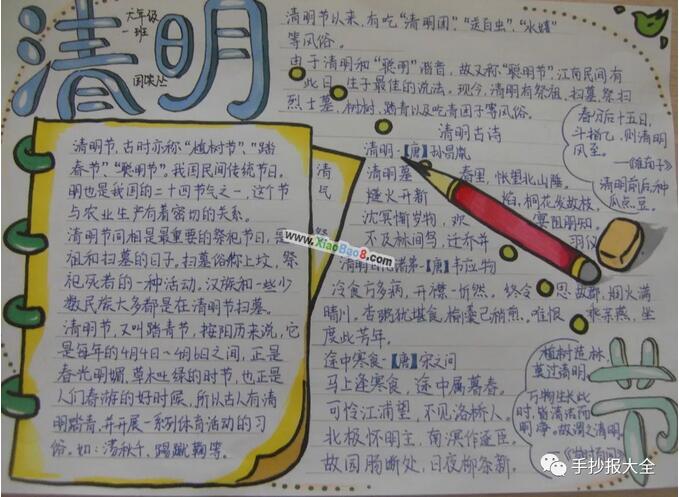 清明
六年级
一班
清明节以来，有吃“清明团”、“送百虫”、
等风俗。
由于清明和“聪明”谐音，故又称“聪明节”，江南民间有
此日 生于最佳的流法。现今，清明有祭祖、扫墓、祭扫
烈士墓、树树、踏青以及吃青团子等风俗。
清明古诗
清明·【唐】孙昌胤
清明暮 春里，怅望北山陲。
燧火开新 焰，桐花发故枝。
沈冥惭岁物，欢 宴阻朋知。
不及林间鸟，迁乔并 羽仪
清明日 弟·【唐】韦应物
冷食方多病，开襟一忻然。终令 思故郡，烟火满
晴川。杏粥犹堪食，榆羹已稍煎。唯恨 乘亲燕，坐
度此芳年。
途中寒食·【唐】宋之问
马上逢寒食，途中属暮春。
可怜江浦望，不见洛桥人。
北极怀明主，南溟作逐臣。
故园肠断处，日夜柳条新。
清明节，古时亦称“植树节”、“踏
春节”、“聪明节”。我国民间传统节日。
明也是我国的二十四节气之一，这个节
与农业生产有着密切的关系。
清明节间相是最重要的祭祀节日，是
祖和扫墓的日子。扫墓俗称上坟，祭
祀死者的一种活动，汉族和一些少
数民族大多都是在清明节扫墓。
清明节，又叫踏青节，按阳历来说，它
是每年的4月4日～4月6日之间，正是
春光明媚，草木吐绿的时节，也正是
人们春游的好时候，所以古人有清
明踏青，并开展一系列体育活动的习
俗。如：荡秋千，蹋蹴鞠等。
清
民
祭
春分后十五日，
斗指乙，则清明
风至。
——《淮南子》
清明前后，种
瓜点豆。
植树造林，
莫过清明。
万物生长此
时，皆清洁而
明净。故谓之清明。
节
www.XiaoBao8.com
手抄报大全